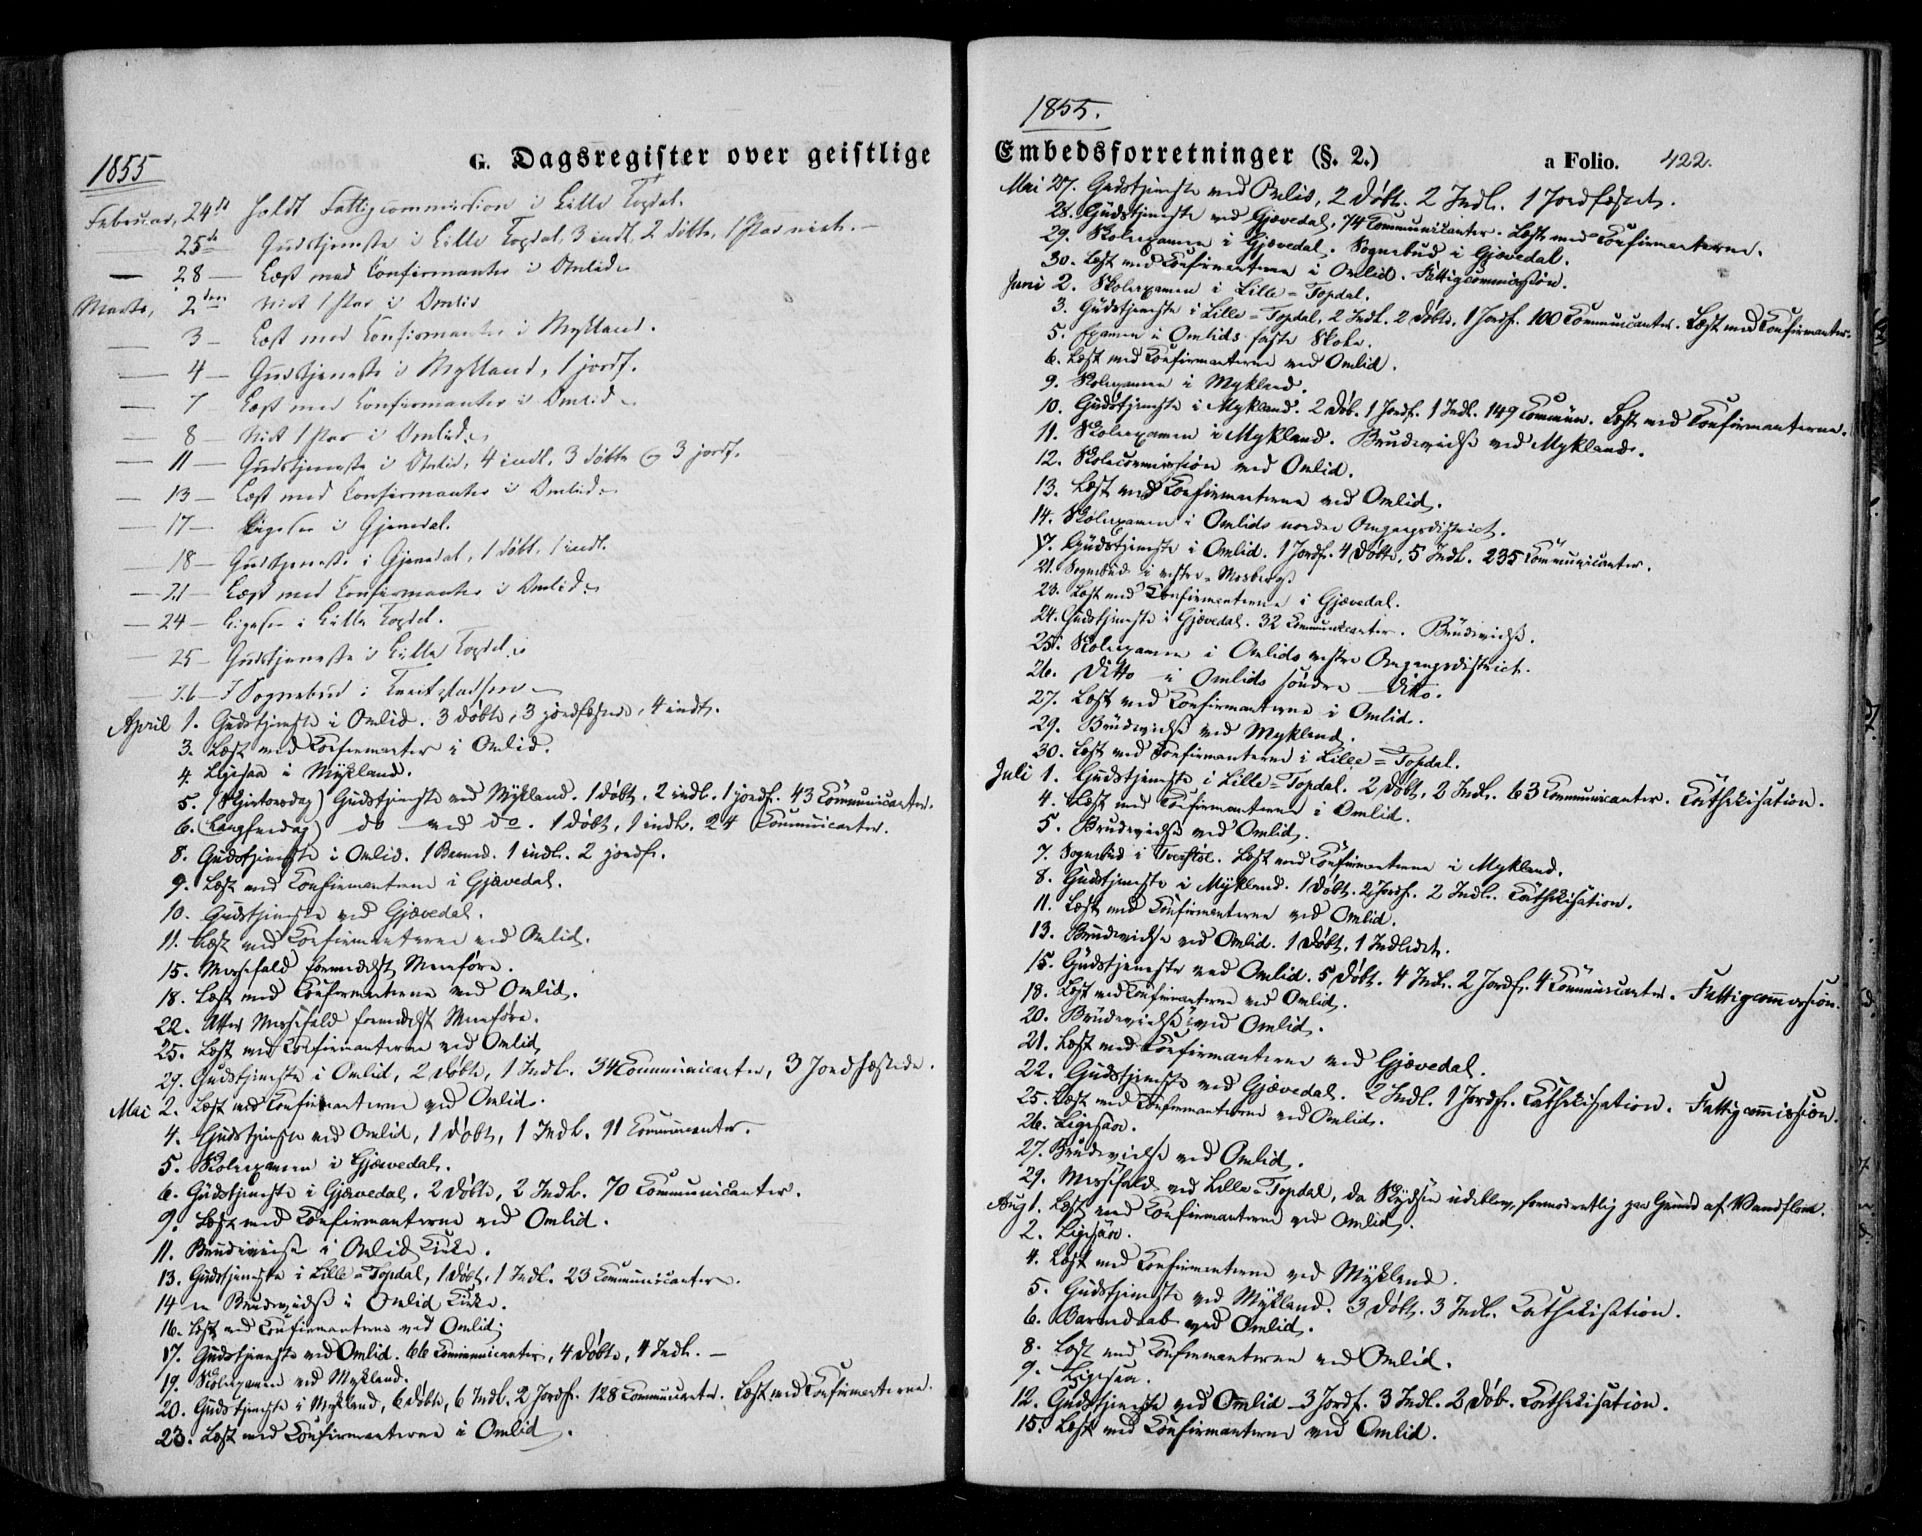 1855
G. Dagsregister over geistlige
Februar, 24de holdt Fattigcommission i Lille Topdal.
25de Gudstjeneste i Lille Topdal, 3 indl. 2 döbte, 1 Par viet. —
— 28 — Læst med Confirmanter i Omlid
Marts, 2den viet 1 Par i Omlid
— 3 — Læst med Confirmanter i Mykland.
— 4 — Gudstjeneste i Mykland, 1 jordf.
— 7 Læst med Confirmanter i Omlid
— 8 — Viet 1 Par i Omlid
— 11 — Gudstjeneste i Omlid, 4 indl. 3 döbte og 3 jordf.
— 13 — Læst med Confirmanter i Omlid
— 17 — Ligesaa i Gjevedal.
— 18 — Gudstjeneste i Gjevedal, 1 döbt, 1 indl.
— 21 — Læst med Confirmanter i Omlid
— 24 — Ligesaa i Lille Topdal.
— 25 — Gudstjeneste i Lille Topdal
— 26 — I Sognebud i
April 1. Gudstjeneste i Omlid. 3 döbte, 3 jordfæstede, 4 indl.
3. Læst med Confirmanter i Omlid.
4. Ligesaa i Mykland.
5. (Skjertorsdag) Gudstjeneste ved Mykland. 1 döbt, 2 indl. 1 jordf. 43 Communicanter.
6. (Langfredag) do ved do. 1 döbt, 1 indl. 24 Communicanter.
8. Gudstjeneste i Omlid. 1 Barned. 1 indl. 2 jordf.
9. Læst med Confirmanterne i Gjævedal.
10. Gudstjeneste ved Gjævedal.
11. Læst med Confirmanterne ved Omlid.
15. Messefald formedelst Meenföre.
18. Læst med Confirmanterne ved Omlid.
22. Atter Messefald formedelst Meenföre.
25. Læst med Confirmanterne ved Omlid
29. Gudstjeneste i Omlid, 2 Döbte, 1 Indl. 34 Communicanter, 3 Jordfæstede.
Mai 2. Læst med Confirmanterne ved Omlid.
4. Gudstjeneste ved Omlid, 1 Döbt, 1 Indl. 91 Communicanter.
5. Skoleexamen i Gjævedal.
6. Gudstjeneste i Gjævedal. 2 Döbte, 2 Indl. 70 Communicanter.
9. Læst med Confirmanterne ved Omlid.
11. Brudevielse i Omlid Kirke.
13. Gudstjeneste i Lille=Topdal, 1 Döbt. 1 Indl. 23 Communicanter.
14 Brudevielse i Omlid Kirke.
16. Læst med Confirmanterne ved Omlid.
17. Gudstjeneste ved Omlid. 66 Communicanter, 4 Döbte, 4 Indl. —
19. Skoleexamen ved Mykland.
20. Gudstjeneste i Mykland, 6 Döbte, 6 Indl. 2 Jordf. 128 Communicanter. Læst med Confirmanterne.
23. Læst med Confirmanterne i Omlid.
1855.
Embedsforretninger (§. 2.) a Folio. 422.
Mai 27. Gudstjeneste ved Omlid, 2 Döbt. 2 Indl. 1 Jordfæstet.
28. Gudstjeneste ved Gjævedal, 74 Communicanter. Læst med Confirmanterne.
29. Skoleexamen i Gjævedal. Sognebud i Gjævedal.
30. Læst med Confirmanterne i Omlid. Fattigcommission.
Juni 2. Skoleexamen i Lille=Topdal.
3. Gudstjeneste i Lille=Topdal. 2 Indl. 2 Döbte. 1 Jordf. 100 Communicanter. Læst med Confirmanter.
5. Examen i Omlids faste Skole.
6. Læst med Confirmanterne ved Omlid.
9. Skoleexamen i Mykland.
10. Gudstjeneste i Mykland. 2 Döb. 1 Jordf. 1 Indl. 149 Commun. Læst med Confirmanterne.
11. Skoleexamen i Mykland. Brudevielse ved Mykland.
12. Skolecommission ved Omlid.
13. Læst med Confirmanterne ved Omlid.
14. Skoleexamen i Omlids nordre Omgangsdistrict.
17. Gudstjeneste i Omlid. 1 Jordf. 4 Döbte, 5 Indl. 235 Communicanter.
21. Sognebud i vestre
23. Læst med Confirmanterne i Gjævedal.
24. Gudstjeneste i Gjævedal. 32 Communicanter. Brudevielse.
25. Skoleexamen i Omlids vestre Omgangsdistrict.
26. Ditto i Omlids söndre Ditto.
27. Læst med Confirmanterne i Omlid.
29. Brudevielse ved Mykland.
30. Læst med Confirmanterne i Lille=Topdal.
Juli 1. Gudstjeneste i Lille=Topdal. 2 Döbt, 2 Indl. 63 Communicanter. Cathekisation.
4. Læst med Confirmanterne i Omlid.
5. Brudevielse ved Omlid.
7. Sognebud i Læst med Confirmanterne i Mykland.
8. Gudstjeneste i Mykland. 1 Döbt. 2 Jordf. 2 Indl. Cathekisation.
11. Læst med Confirmanterne ved Omlid.
13. Brudevielse ved Omlid. 1 Döbt. 1 Indledet.
15. Gudstjeneste ved Omlid. 5 Döbt. 4 Indl. 2 Jordf. 4 Communicanter. Fattigcommission.
18. Læst med Confirmanterne ved Omlid.
20. Brudevielse ved Omlid.
21. Læst med Confirmanterne ved Gjævedal.
22. Gudstjeneste ved Gjævedal. 2 Indl. 1 Jordf. Cathekisation. Fattigcommission.
25. Læst med Confirmanterne ved Omlid.
26. Ligesaa.
27. Brudevielse ved Omlid.
29. Messefald ved Lille=Topdal, da Skydsen udeblev, formodentlig paa Grund af Vandflom.
Aug 1. Læst med Confirmanterne ved Omlid.
2. Ligesaa.
4. Læst med Confirmanterne ved Mykland.
5. Gudstjeneste ved Mykland. 3 Döbt. 3 Indl. Cathekisation.
6. Barnedaab ved Omlid.
8. Læst med Confirmanterne ved Omlid.
9. Ligesaa.
12. Gudstjeneste ved Omlid 3 Jordf. 3 Indl. 2 Döb. Cathekisation.
15. Læst med Confirmanterne ved Omlid.